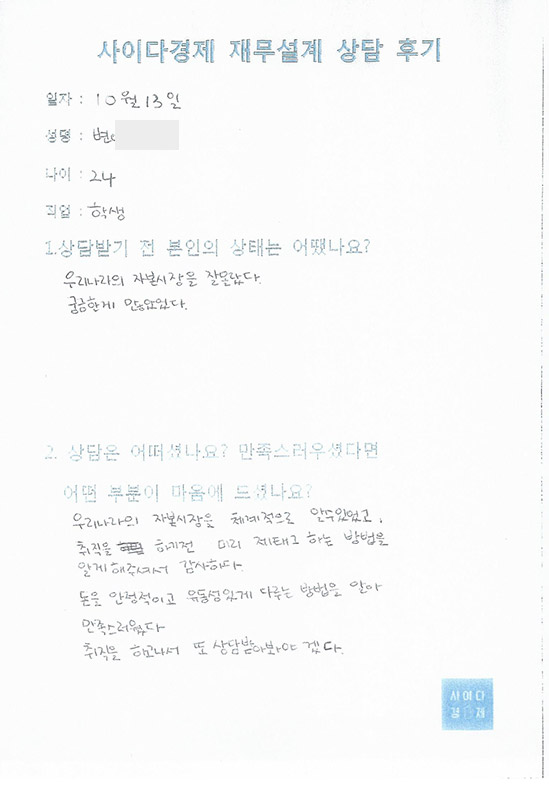 사이다경제 재무설계 상담 후기
일자 : 10월 13일
성명 : 변
나이 : 24
직업 : 학생
1.상담받기 전 본인의 상태는 어땠나요?
우리나라의 자본시장을 잘몰랐다.
궁금한게 많았었다.
2. 상담은 어떠셨나요? 만족스러우셨다면
어떤 부분이 마음에 드셨나요?
우리나라의 자본시장을 체계적으로 알수있었고,
취직을 하기전 미리 제태크 하는 방법을
알게해주셔서 감사하다.
돈을 안정적이고 유동성있게 다루는 방법을 알아
만족스러웠다
취직을 하고나서 또 상담받아봐야 겠다.
사이다
경제